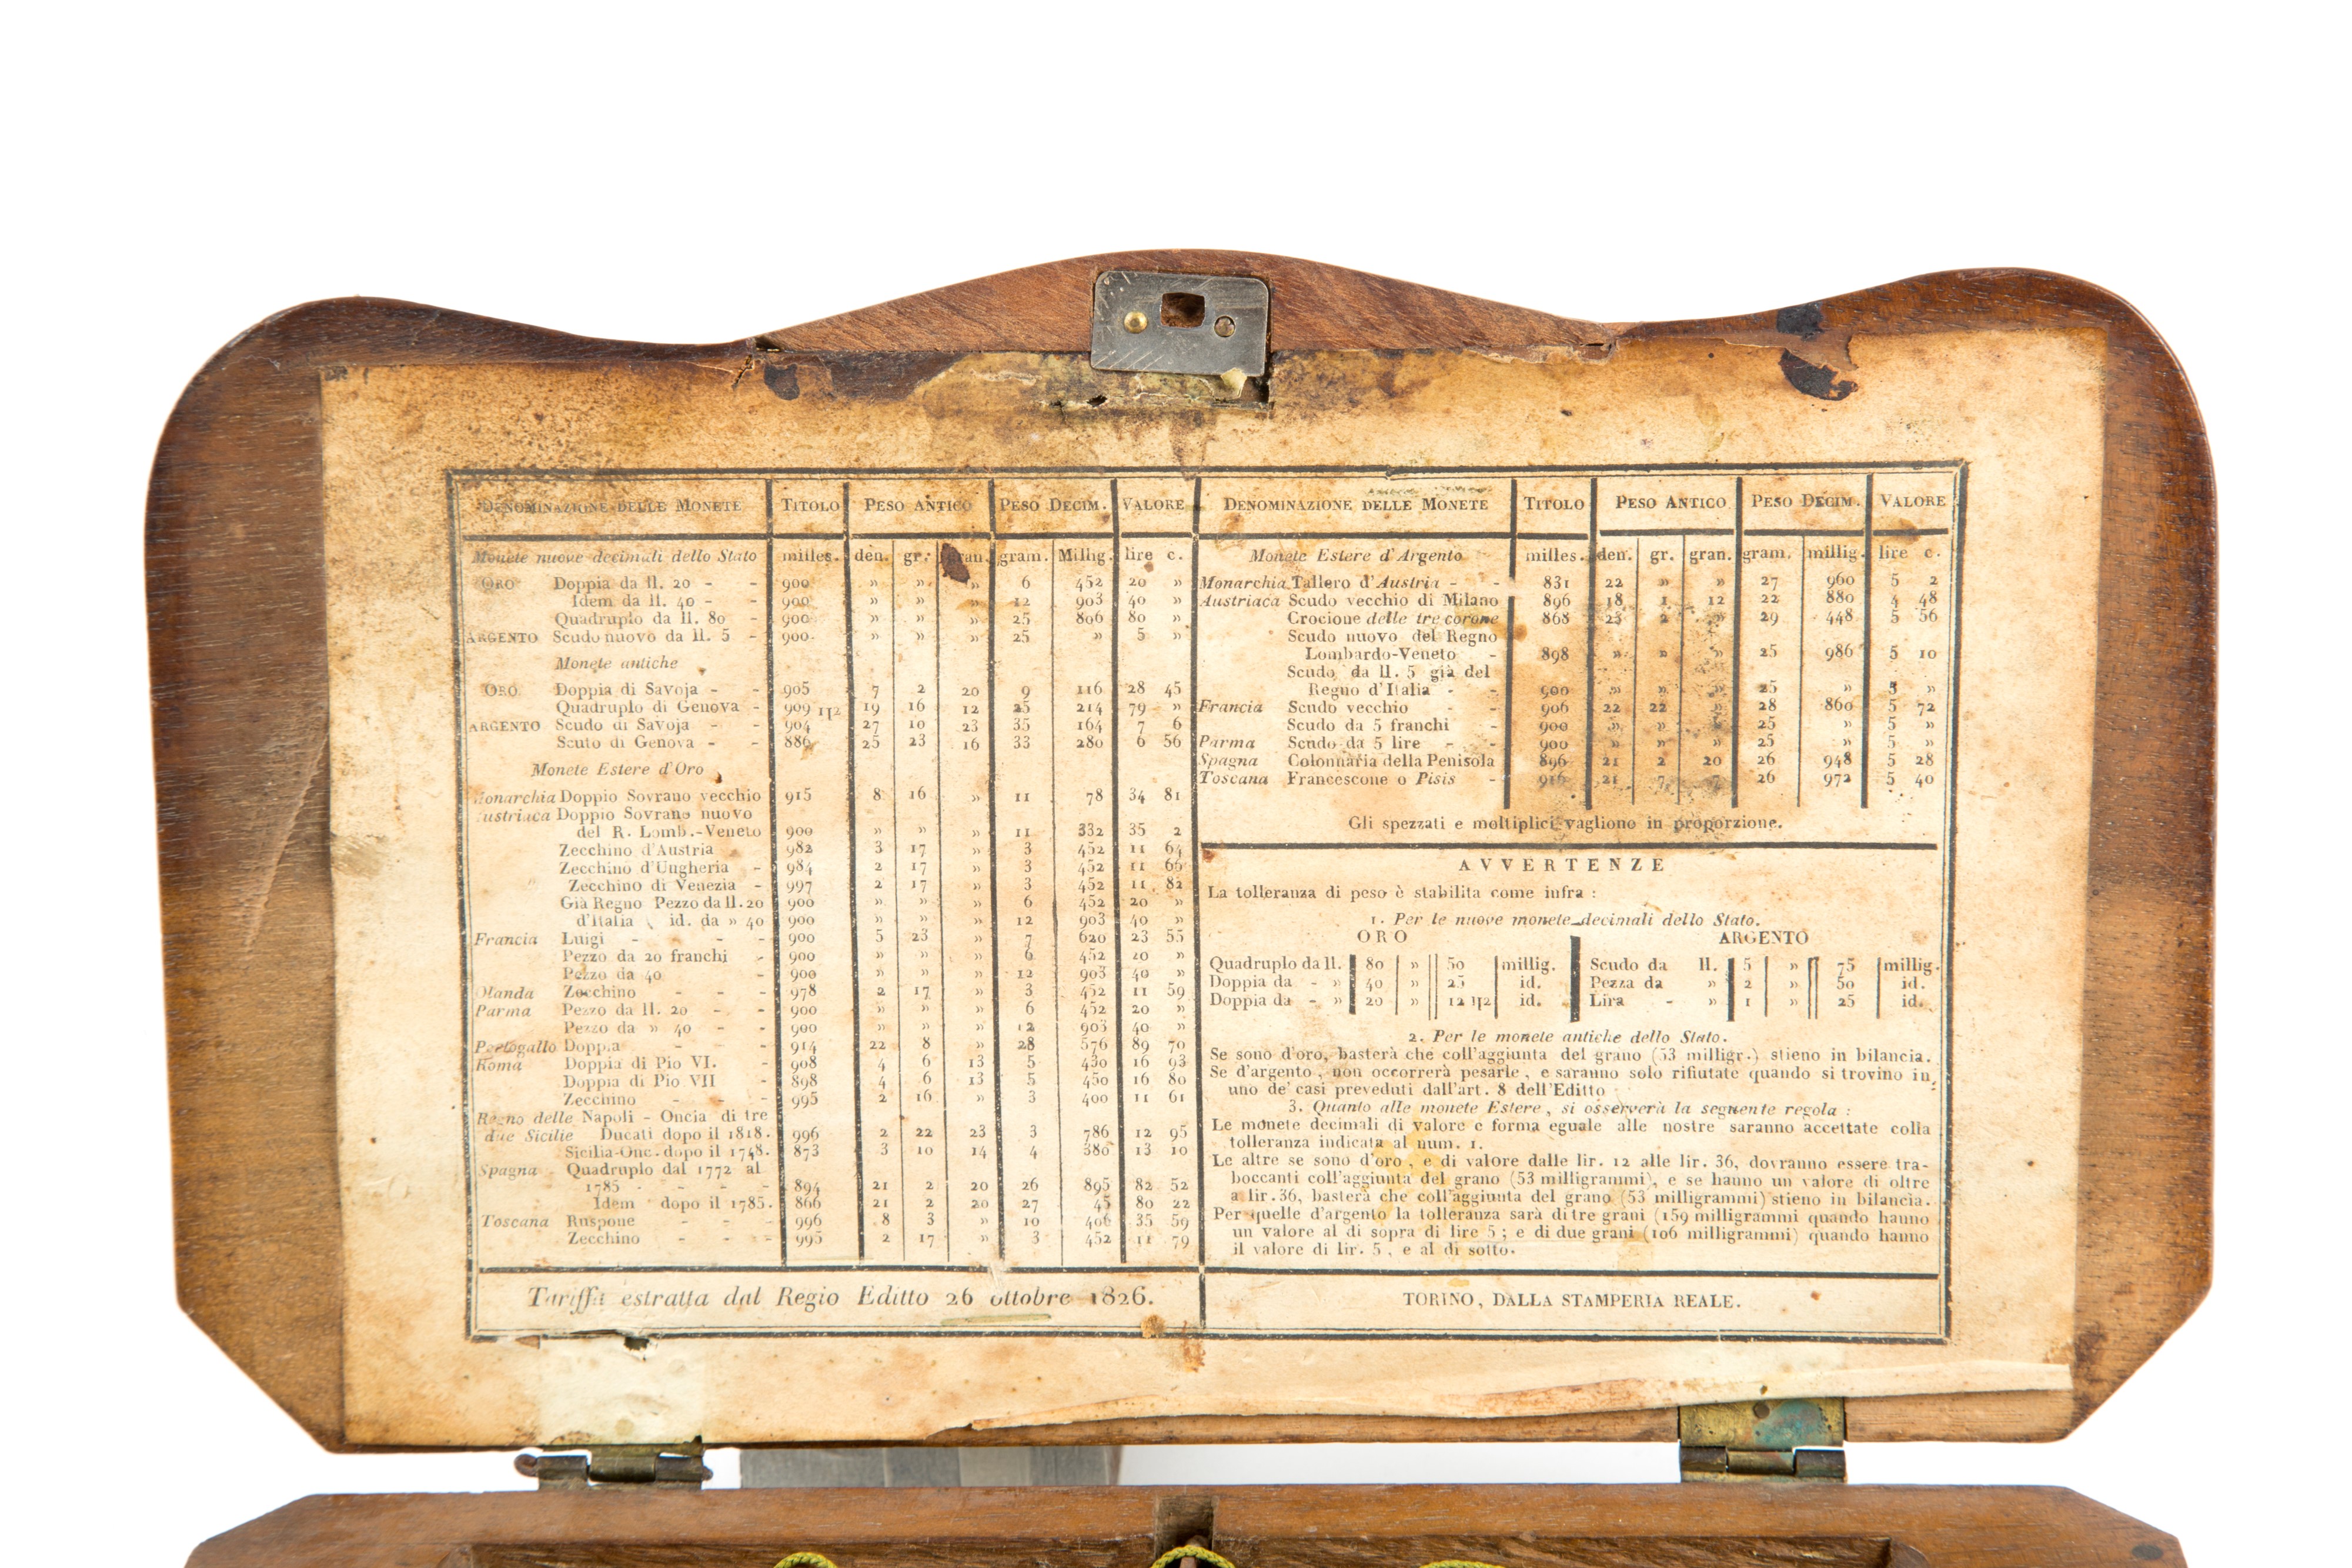 DENOMINAZIONE DELLE MONETE TITOLO PESO ANTICO PESO DECIM. VALORE
Monete nuove decimali dello Stato milles. den. gr. gran. gram. Millig. lire c.
ORO Doppia da ll. 20 - - 900 » » » 6 452 20 »
Idem da ll. 40 - - 900 » » » 12 903 40 »
Quadruplo da ll. 80 - 900 » » » 25 806 80 »
ARGENTO Scudo nuovo da ll. 5 - 900 » » » 25 » 5 »
Monete antiche
ORO Doppia di Savoja - - 905 7 2 20 9 116 28 45
Quadruplo di Genova - 909 1|2 19 16 12 25 214 79 »
ARGENTO Scudo di Savoja - - 904 27 10 23 35 164 7 6
Scuto di Genova - - 886 25 23 16 33 280 6 56
Monete Estere d'Oro
Monarchia Doppio Sovrano vecchio 915 8 16 » 11 78 34 81
Austriaca Doppio Sovrano nuovo
del R. Lomb.-Veneto 900 » » » 11 332 35 2
Zecchino d'Austria 982 3 17 » 3 452 11 64
Zecchino d'Ungheria - 984 2 17 » 3 452 11 66
Zecchino di Venezia - 997 2 17 » 3 452 11 82
Già Regno Pezzo da ll. 20 900 » » » 6 452 20 »
d'Italia id. da » 40 900 » » » 12 903 40 »
Francia Luigi - - - 900 5 23 » 7 620 23 55
Pezzo da 20 franchi - 900 » » » 6 452 20 »
Pezzo da 40 - 900 » » » 12 903 40 »
Olanda Zecchino - - - 978 2 17 » 3 452 11 59
Parma Pezzo da ll. 20 - - 900 » » » 6 452 20 »
Pezzo da » 40 - - 900 » » » 12 903 40 »
Portogallo Doppia - - - 914 22 8 » 28 576 89 70
Roma Doppia di Pio VI. - 908 4 6 13 5 450 16 93
Doppia di Pio VII - 898 4 6 13 5 450 16 80
Zecchino - - - 995 2 16 » 3 400 11 61
Regno delle Napoli - Oncia di tre
due Sicilie Ducati dopo il 1818. 996 2 22 23 3 786 12 95
Sicilia-Onc. dopo il 1748. 873 3 10 14 4 380 13 10
Spagna Quadruplo dal 1772 al
1785 - - - - 894 21 2 20 26 895 82 52
Idem dopo il 1785. 866 21 2 20 27 45 80 22
Toscana Ruspone - - - 996 8 3 » 10 406 35 59
Zecchino - - - 995 2 17 » 3 452 11 79
Tariffa estratta dal Regio Editto 26 ottobre 1826.
DENOMINAZIONE DELLE MONETE TITOLO PESO ANTICO PESO DECIM. VALORE
Monete Estere d'Argento milles. den. gr. gran. gram. millig. lire c.
Monarchia Tallero d'Austria - - 831 22 » » 27 960 5 2
Austriaca Scudo vecchio di Milano 896 18 1 12 22 880 4 48
Crocione delle tre corone 868 23 2 » 29 448 5 56
Scudo nuovo del Regno
Lombardo-Veneto - 898 » » » 25 986 5 10
Scudo da ll. 5 già del
Regno d'Italia - - 900 » » » 25 » 5 »
Francia Scudo vecchio - - 906 22 22 » 28 860 5 72
Scudo da 5 franchi - 900 » » » 25 » 5 »
Parma Scudo da 5 lire - - 900 » » » 25 » 5 »
Spagna Colonnaria della Penisola 896 21 2 20 26 948 5 28
Toscana Francescone o Pisis - 916 21 7 7 26 972 5 40
Gli spezzati e moltiplici vagliono in proporzione.
AVVERTENZE
La tolleranza di peso è stabilita come infra :
1. Per le nuove monete decimali dello Stato.
ORO ARGENTO
Quadruplo da ll. 80 » 50 millig. Scudo da ll. 5 » 75 millig.
Doppia da - » 40 » 25 id. Pezza da » 2 » 50 id.
Doppia da - » 20 » 12 1|2 id. Lira - » 1 » 25 id.
2. Per le monete antiche dello Stato.
Se sono d'oro, basterà che coll'aggiunta del grano (53 milligr.) stieno in bilancia.
Se d'argento, non occorrerà pesarle, e saranno solo rifiutate quando si trovino in
uno de' casi preveduti dall'art. 8 dell'Editto
3. Quanto alle monete Estere, si osserverà la seguente regola :
Le monete decimali di valore e forma eguale alle nostre saranno accettate colla
tolleranza indicata al num. 1.
Le altre se sono d'oro, e di valore dalle lir. 12 alle lir. 36, dovranno essere tra-
boccanti coll'aggiunta del grano (53 milligrammi), e se hanno un valore di oltre
a lir. 36, basterà che coll'aggiunta del grano (53 milligrammi) stieno in bilancia.
Per quelle d'argento la tolleranza sarà di tre grani (159 milligrammi quando hanno
un valore al di sopra di lire 5 ; e di due grani (106 milligrammi) quando hanno
il valore di lir. 5, e al di sotto.
TORINO, DALLA STAMPERIA REALE.